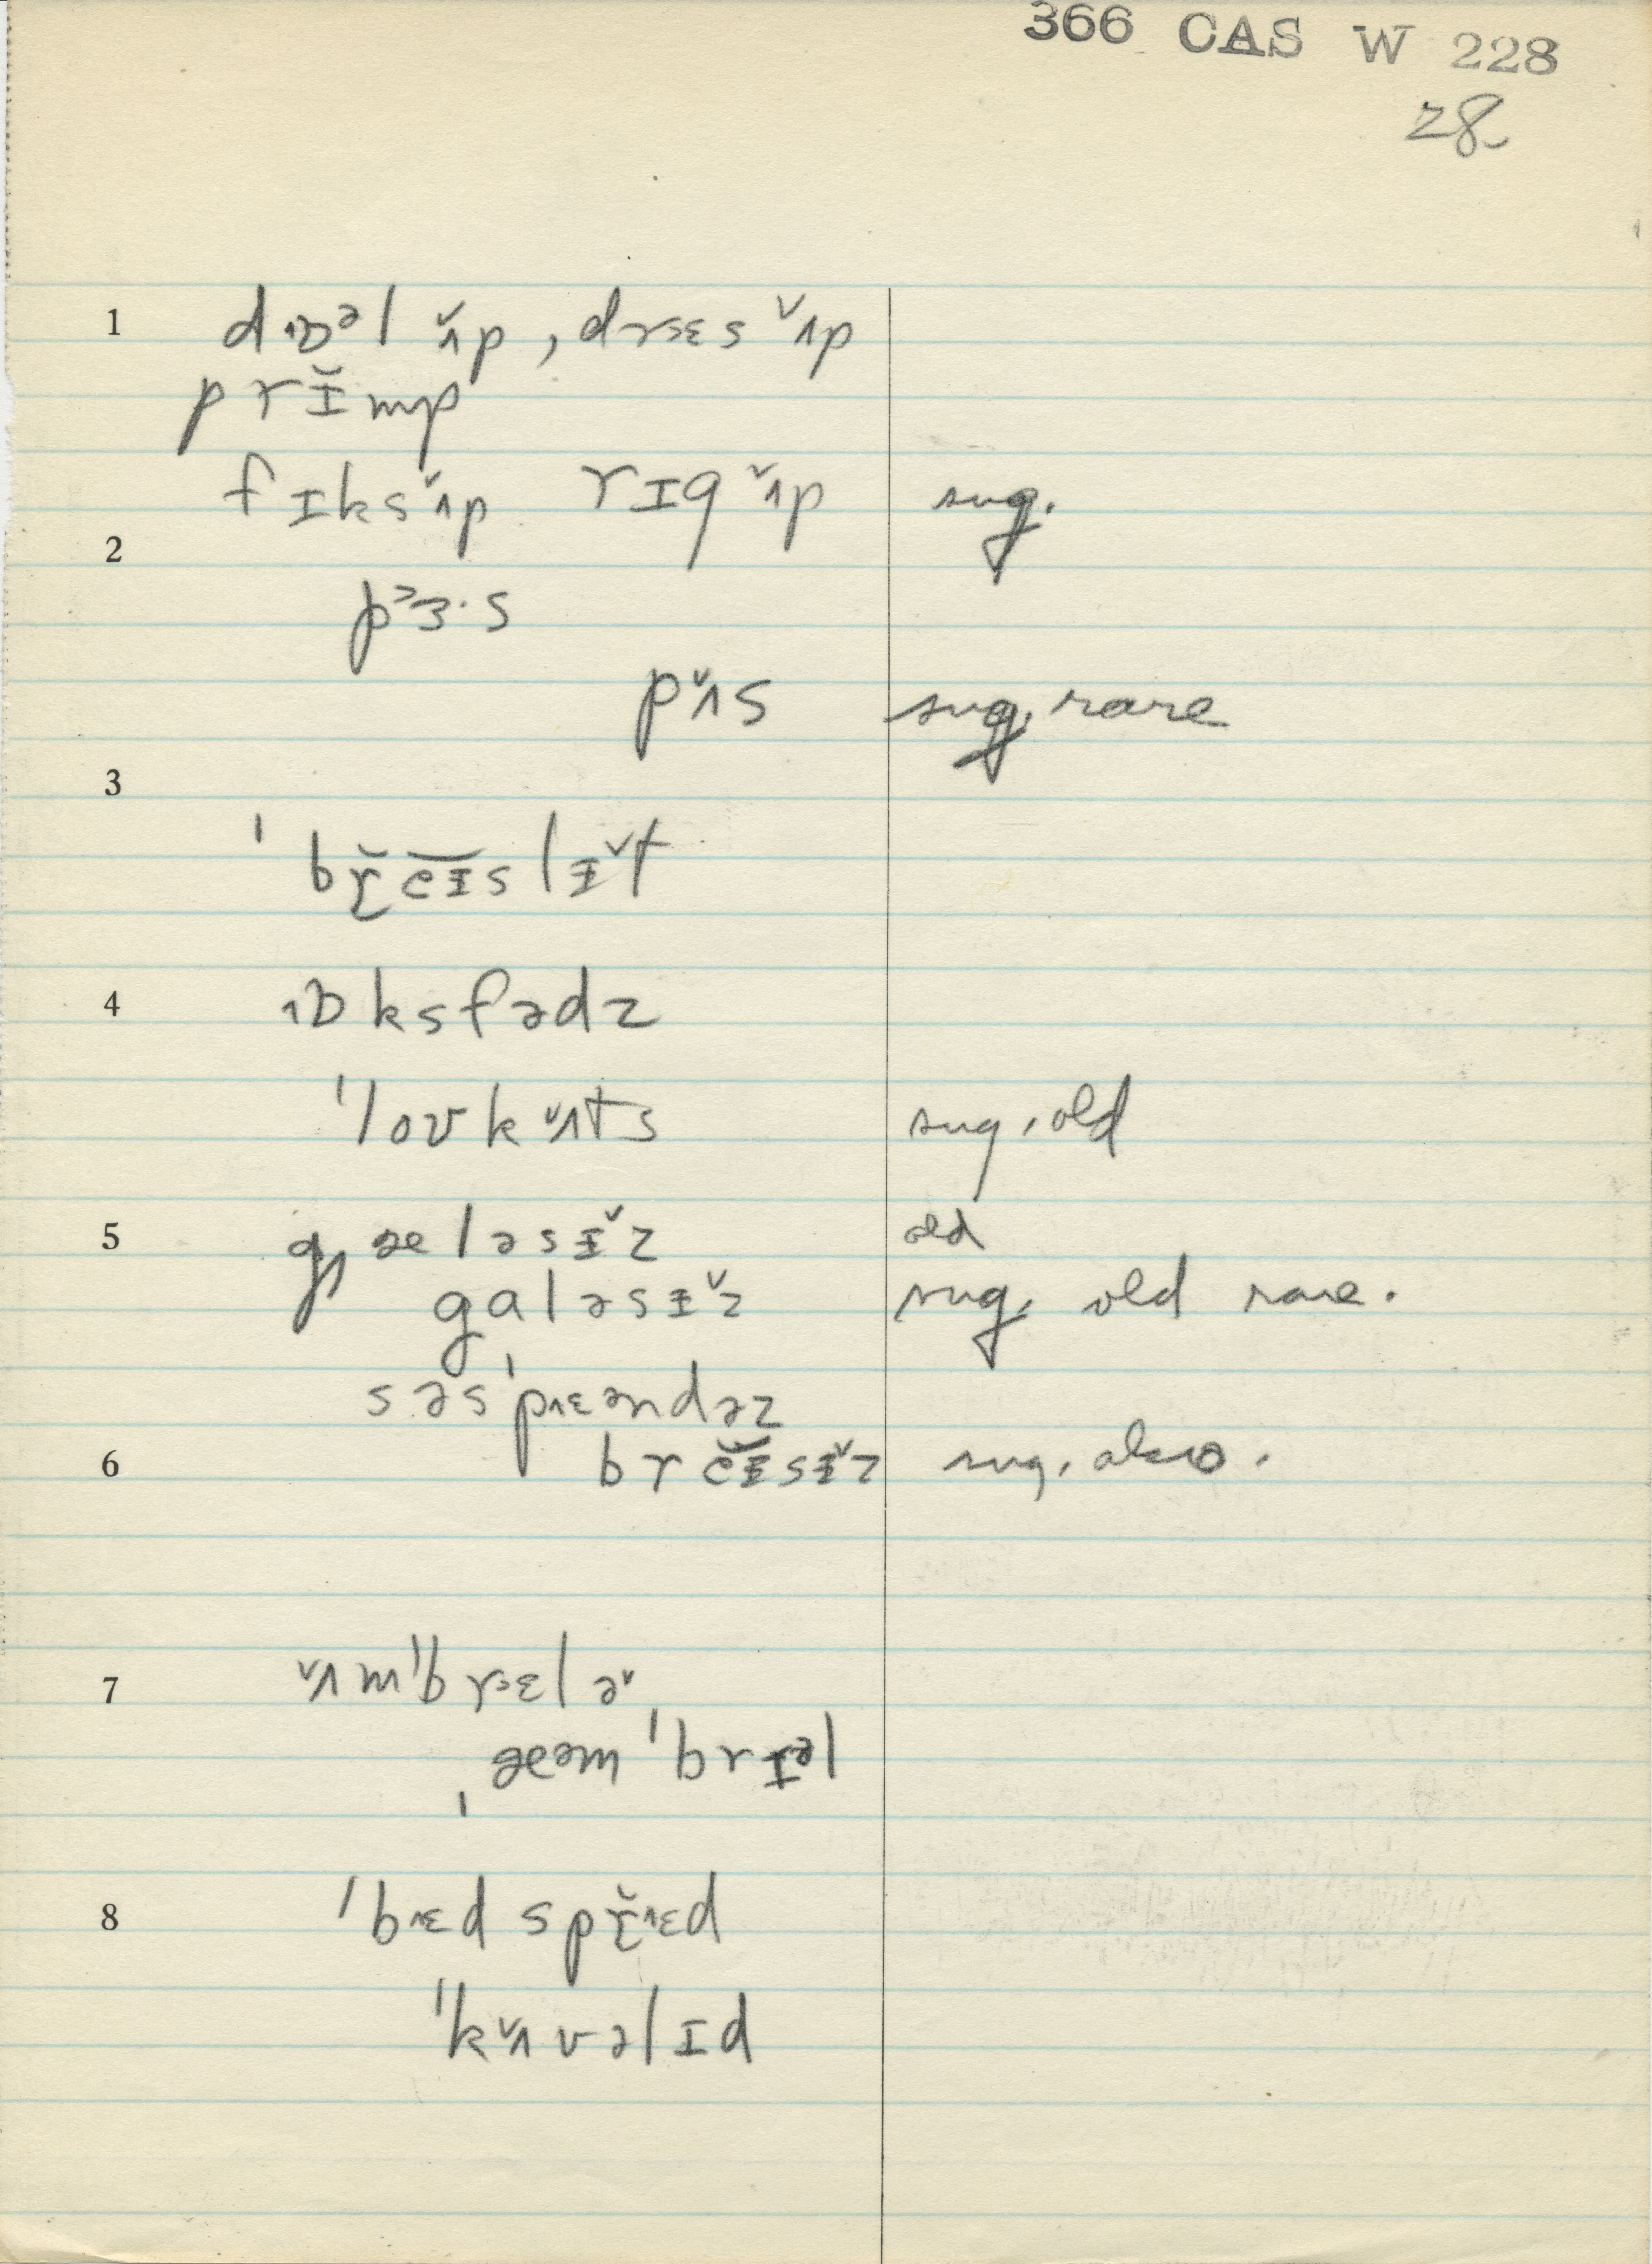 366 CAS W 228
28
1 dɒᵊl ʌ̌p, drɛs ʌ̌p
prɪ̆mp
fɪks ʌ̌p rɪg ʌ̌p sug.
2
pɜ·s
pʌ̌s sug. rare
3
ˈbr̆eɪslɪ̌t
4 ɒksfədz
ˈloʊkʌ̌ts sug. old
5 gæləsɪ̌z old
galəsɪ̌z sug. old rare.
səsˈpɛəndəz
6 breɪsɪ̌z sug. also.
7 ʌ̌mˈbrɛlə̌
ˌæəmˈbrɪəl
8 ˈbɛd spr̆ɛd
ˈkʌ̌vəlɪd